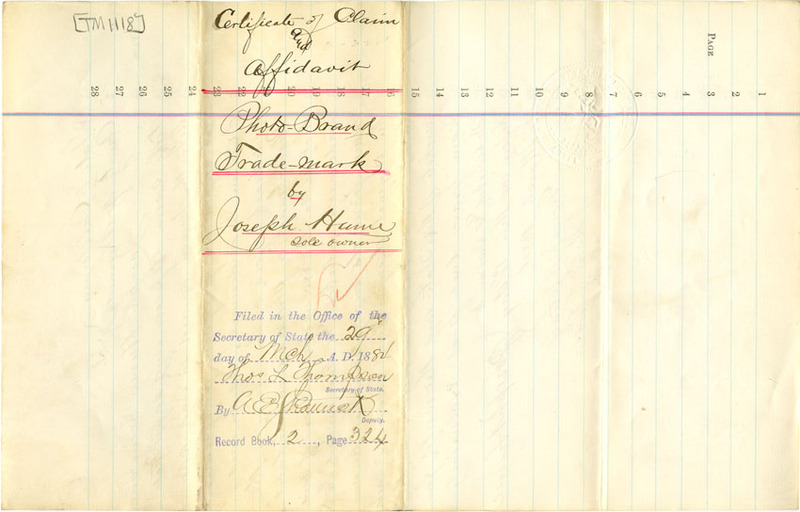 [TM 1118]
Certificate of Claim
and
Affidavit
Photo-Brand
Trade-mark
by
Joseph Hume
sole owner
Filed in the Office of the
Secretary of State the 29
day of Mch A. D. 188
Thos L Thompson
Secretary of State.
By
Deputy.
Record Book, 2, Page 324
PAGE
1
2
3
4
5
6
7
8
9
10
11
12
13
14
15
16
17
18
19
20
21
22
23
24
25
26
27
28